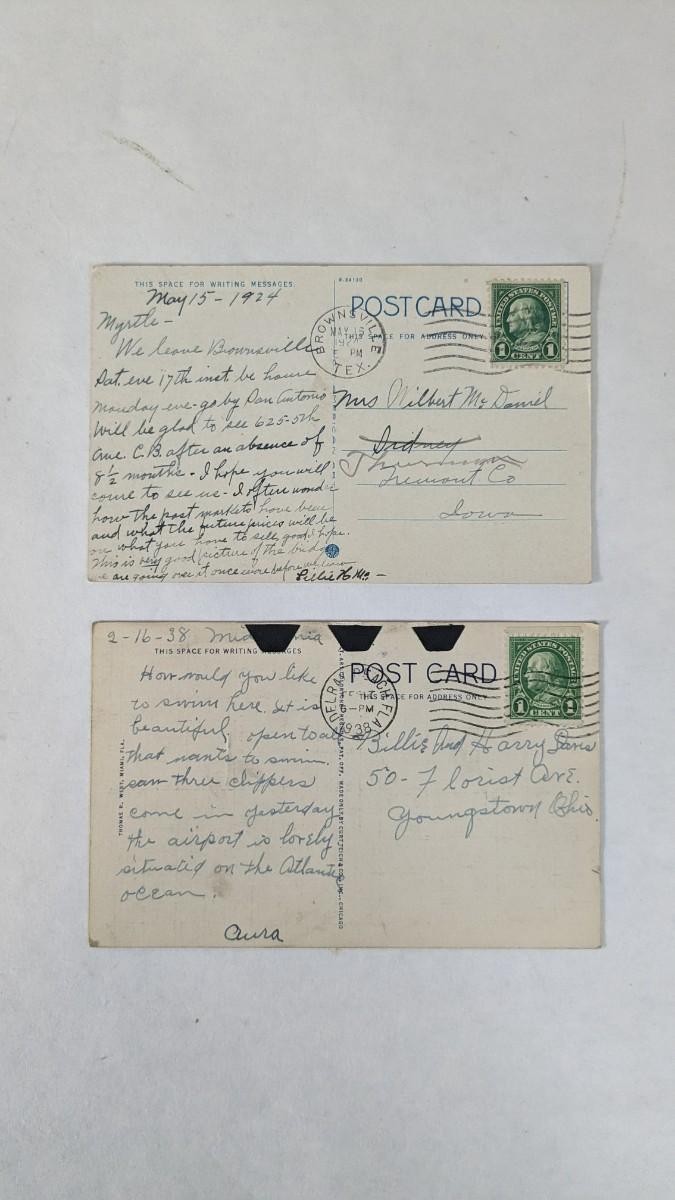 THIS SPACE FOR WRITING MESSAGES.
May 15 - 1924
Myrtle -
We leave Brownsville
Sat. eve 17th inst. be home
Monday eve - go by San Antonio
Will be glad to see 625-5th
Ave. C.B. after an absence of
8 1/2 months. - I hope you will
come to see us - I often wonder
how the past markets have been
and what the future prices will be
on what you have to sell, good I hope.
This is very good picture of the bridge
we are going over it once more before we leave
Lillie
POST CARD
THIS SPACE FOR ADDRESS ONLY
BROWNSVILLE
MAY 15
PM
TEX.
UNITED STATES POSTAGE
1 CENT 1
Mrs Wilbert McDaniel
Sidney
Thurman
Fremont Co
Iowa
2-16-38
THIS SPACE FOR WRITING MESSAGES
How would you like
to swim here. It is
beautiful, open to all
that wants to swim.
saw three clippers
come in yesterday
the airport is lovely
situated on the Atlantic
ocean.
Aura
THOMAS R. WEST, MIAMI, FLA.
POST CARD
THIS SPACE FOR ADDRESS ONLY
DELRAY BEACH, FLA.
6-PM
1938
UNITED STATES POSTAGE
1 CENT 1
Billie And Harry Davis
50 - Florist Ave.
Youngstown Ohio.